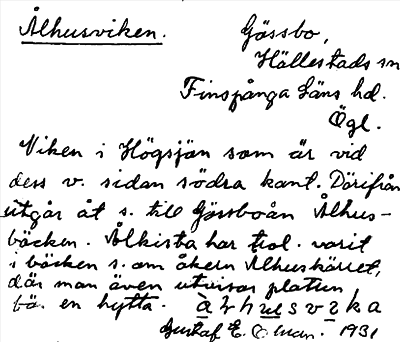 Ålhusviken.
Gössbo,
Hällestads sn
Finspånga Läns hd.
Ögl.
Viken i Högsjön som är vid
dess v. sidan södra kant. Därifrån
utgår åt s. till Gössboån Ålhus-
bäcken. Ålkista har trol. varit
i bäcken s. om åkern Ålhuskärret,
där man även utvisar platsen
för en hytta.
Gustaf E. 1931